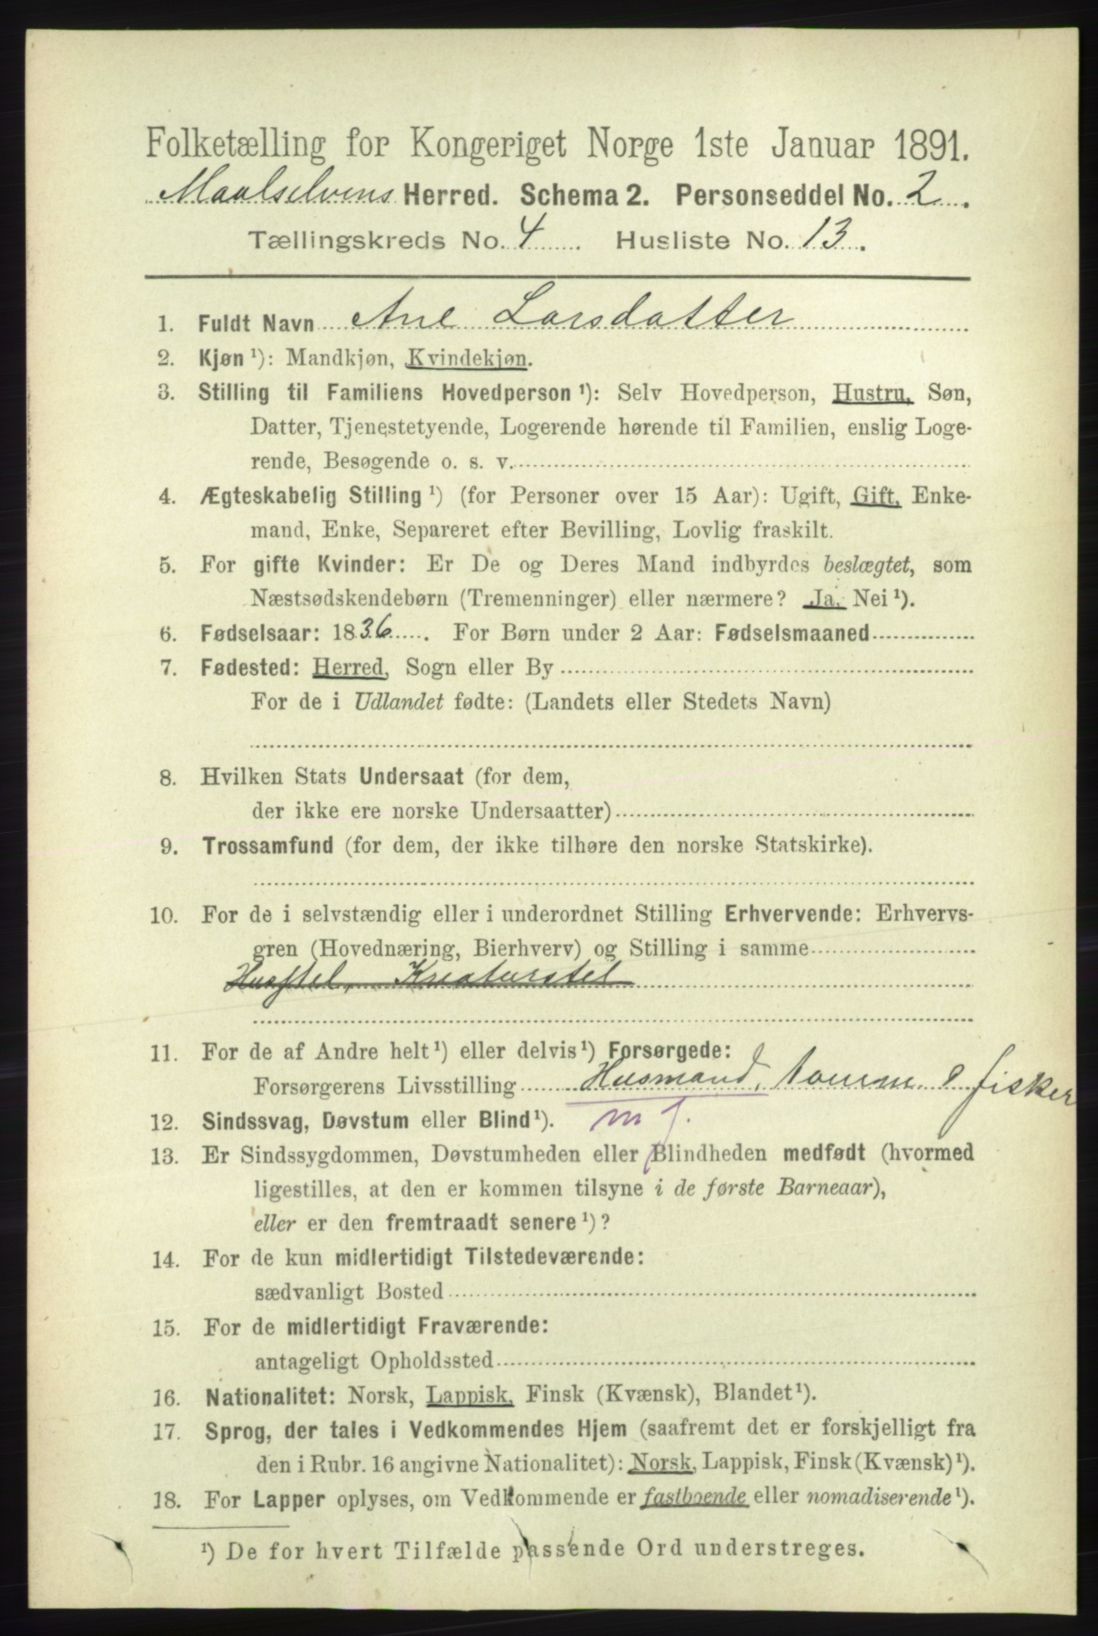 Folketælling for Kongeriget Norge 1ste Januar 1891.
Maalselvens Herred. Schema 2. Personseddel No. 2.
Tællingskreds No. 4. Husliste No. 13.
1. Fuldt Navn Ane Larsdatter
2. Kjøn ¹): Mandkjøn, Kvindekjøn.
3. Stilling til Familiens Hovedperson ¹): Selv Hovedperson, Hustru, Søn,
Datter, Tjenestetyende, Logerende hørende til Familien, enslig Loge-
rende, Besøgende o. s. v.
4. Ægteskabelig Stilling ¹) (for Personer over 15 Aar): Ugift, Gift, Enke-
mand, Enke, Separeret efter Bevilling, Lovlig fraskilt.
5. For gifte Kvinder: Er De og Deres Mand indbyrdes beslægtet, som
Næstsødskendebørn (Tremenninger) eller nærmere? Ja, Nei ¹).
6. Fødselsaar: 1836. For Børn under 2 Aar: Fødselsmaaned
7. Fødested: Herred, Sogn eller By
For de i Udlandet fødte: (Landets eller Stedets Navn)
8. Hvilken Stats Undersaat (for dem,
der ikke ere norske Undersaatter)
9. Trossamfund (for dem, der ikke tilhøre den norske Statskirke).
10. For de i selvstændig eller i underordnet Stilling Erhvervende: Erhvervs-
gren (Hovednæring, Bierhverv) og Stilling i samme
Husstel, Kreaturstel
11. For de af Andre helt ¹) eller delvis ¹) Forsørgede:
Forsørgerens Livsstilling Husmand, fisker
12. Sindssvag, Døvstum eller Blind ¹). m j.
13. Er Sindssygdommen, Døvstumheden eller Blindheden medfødt (hvormed
ligestilles, at den er kommen tilsyne i de første Barneaar),
eller er den fremtraadt senere ¹)?
14. For de kun midlertidigt Tilstedeværende:
sædvanligt Bosted
15. For de midlertidigt Fraværende:
antageligt Opholdssted
16. Nationalitet: Norsk, Lappisk, Finsk (Kvænsk), Blandet ¹).
17. Sprog, der tales i Vedkommendes Hjem (saafremt det er forskjelligt fra
den i Rubr. 16 angivne Nationalitet): Norsk, Lappisk, Finsk (Kvænsk) ¹).
18. For Lapper oplyses, om Vedkommende er fastboende eller nomadiserende ¹).
¹) De for hvert Tilfælde passende Ord understreges.